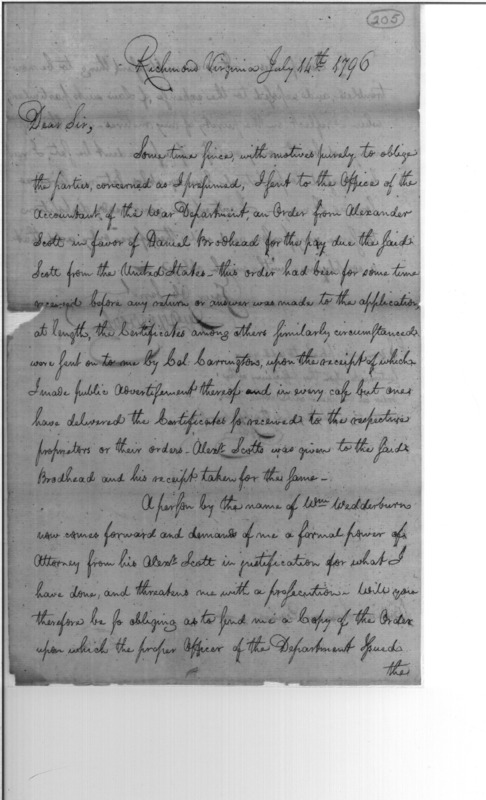 205
Richmond Virginia July 14th 1796
Dear Sir,
Some time since, with motives purely to oblige
the parties, concerned as I presumed, I sent to the Office of the
Accountant, of the War Department, an Order from Alexander
Scott in favor of Daniel Brodhead for the pay due the said
Scott from the United States - this order had been for some time
received before any return or answer was made to the application,
at length, the Certificates among others similarly circumstanced
were sent on to me by Col Carrington, upon the receipt of which
I made public Advertisement thereof and in every case but one
have delivered the Certificates so received to the respective
proprietors or their orders - Alexr. Scotts was given to the said
Brodhead and his receipt taken for the same -
A person by the name of Wm Wedderburn
now comes forward and demands of me a formal power of
Attorney from his Alexr. Scott in justification for what I
have done, and threatens me with a prosecution - Will you
therefore be so obliging as to send me a Copy of the Order
upon which the proper Officer of the Department issued
the